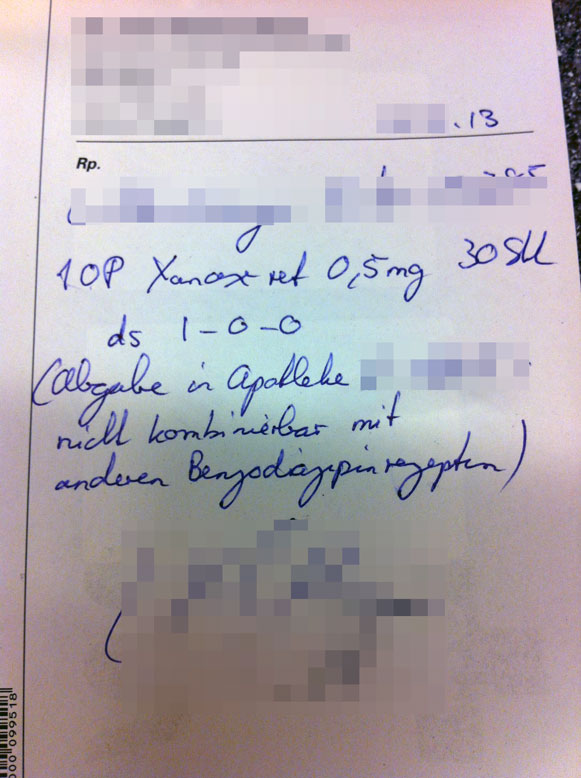 .13
Rp.
10P Xanax ret 0,5mg 30 Stk
ds 1-0-0
(Abgabe in Apotheke
nicht kombinierbar mit
anderen Benzodiazepinrezepten)
000099518